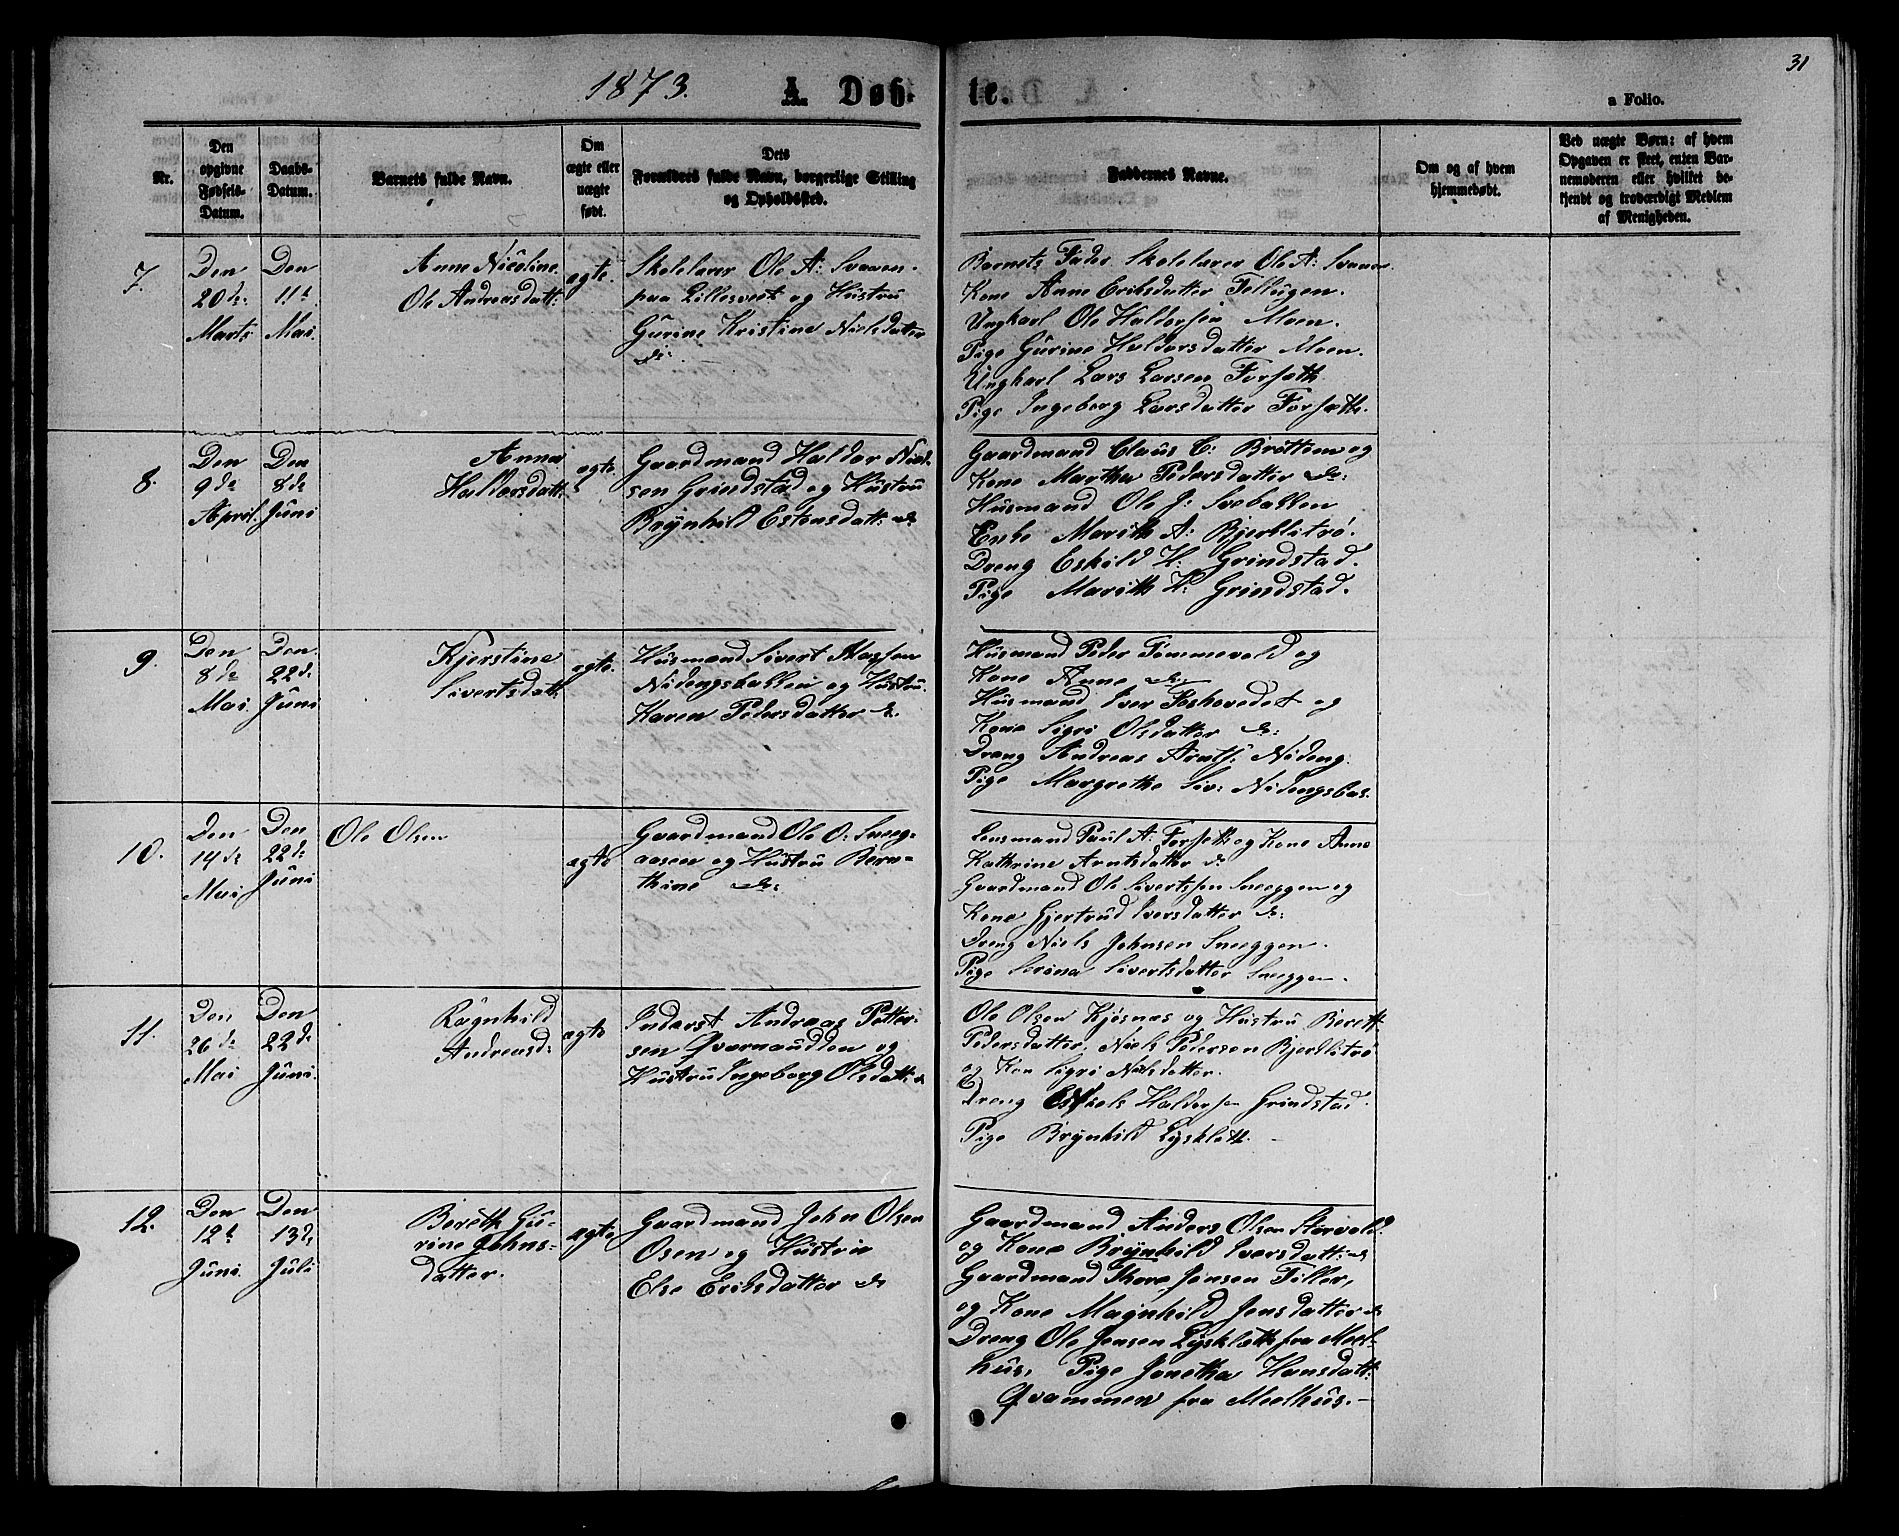 31
1873. A. Døb-te.
a Folio.
Nr.
Den opgivne Fødsels-Datum.
Daabs-Datum.
Barnets fulde Navn.
Om ægte eller uægte født.
Dets Forældres fulde Navn, borgerlige Stilling og Opholdssted.
Faddernes Navne.
Om og af hvem hjemmedøbt.
Ved uægte Børn: af hvem Opgaven er skeet, enten Barnemoderen eller hvilket bekjendt og troværdigt Medlem af Menigheden.
7.
Den 20de Marts
Den 11te Mai.
Anne Nicoline
Ole Andreasdatt:
ægte.
Skolelærer Ole A: Svaaen
paa Lillesvedt og Hustru
Gurine Kristine Nielsdatter
do.
Barnets Fader Skolelærer Ole A: Svaaen
Kone Anne Eriksdatter Tellugen.
Ungkarl Ole Haldorsen Moen.
Pige Gurine Haldorsdatter Moen.
Ungkarl Lars Larsen Forseth
Pige Ingeborg Larsdatter Forseth.
8.
Den 9de April.
Den 8de Juni
Anna
Haldorsdatt:
ægte
Gaardmand Haldor Niel-
sen Grindstad og Hustru
Brynhild Estensdatt: do
Gaardmand Claus C: Brøttem og
Kone Martha Pedersdatter do:
Husmand Ole J: Svebakken
Enke Marith A: Bjerklitrø.
Dreng Eskild H: Grindstad.
Pige Marith H: Grindstad.
9.
Den 8de Mai
Den 22de Juni
Kjerstine
Sivertsdatt:
ægte.
Husmand Sivert Aagsen
Nidengsbakken og Hustru
Karen Pedersdatter do.
Husmand Peder Tømmevold og
Kone Anne do:
Husmand Iver Foshovedet og
Kone Sigri Olsdatter do:
Dreng Andreas Arnts: Nideng
Pige Margrethe Siv: Nidengsbak.
10.
Den 14de Mai
Den 22de Juni
Ole Olsen
ægte
Gaardmand Ole O: Sneeg-
aasen og Hustru Bern-
thine do:
Lensmand Paul A: Forseth og Kone Anne
Kathrine Arntsdatter do
Gaardmand Ole Sivertssen Sneeggen og
Kone Gjertrud Iversdatter do:
Dreng Niels Johnsen Sneeggen.
Pige Serina Sivertsdatter Sneeggen.
11.
Den 26de Mai
Den 22de Juni.
Ragnhild
Andreasd:
ægte
Inderst Andreas Petter-
sen Qvernaudden og
Hustru Ingeborg Olsdatt: do
Ole Olsen Kjøsnæs og Hustru Berett
Pedersdatter, Niels Pedersen Bjerklitrø
og Kon Sigri Nielsdatter.
Dreng Haldorsen Grindstad.
Pige Brynhild Lyskleth.
12.
Den 12te Juni.
Den 13de Juli
Bereth Gu-
rine Johns-
datter.
ægte
Gaardmand John Olsen
Osen og Hustru
Else Eriksdatter do
Gaardmand Anders Olsen Storvold
og Kone Brynhild Iversdatt: do
Gaardmand Thore Jensen Tiller,
og Kone Magnhild Jensdatter do
Dreng Ole Jensen Lyskleth fra Meel-
hus, Pige Jonetha Hansdatt:
Qvammen fra Meelhus.